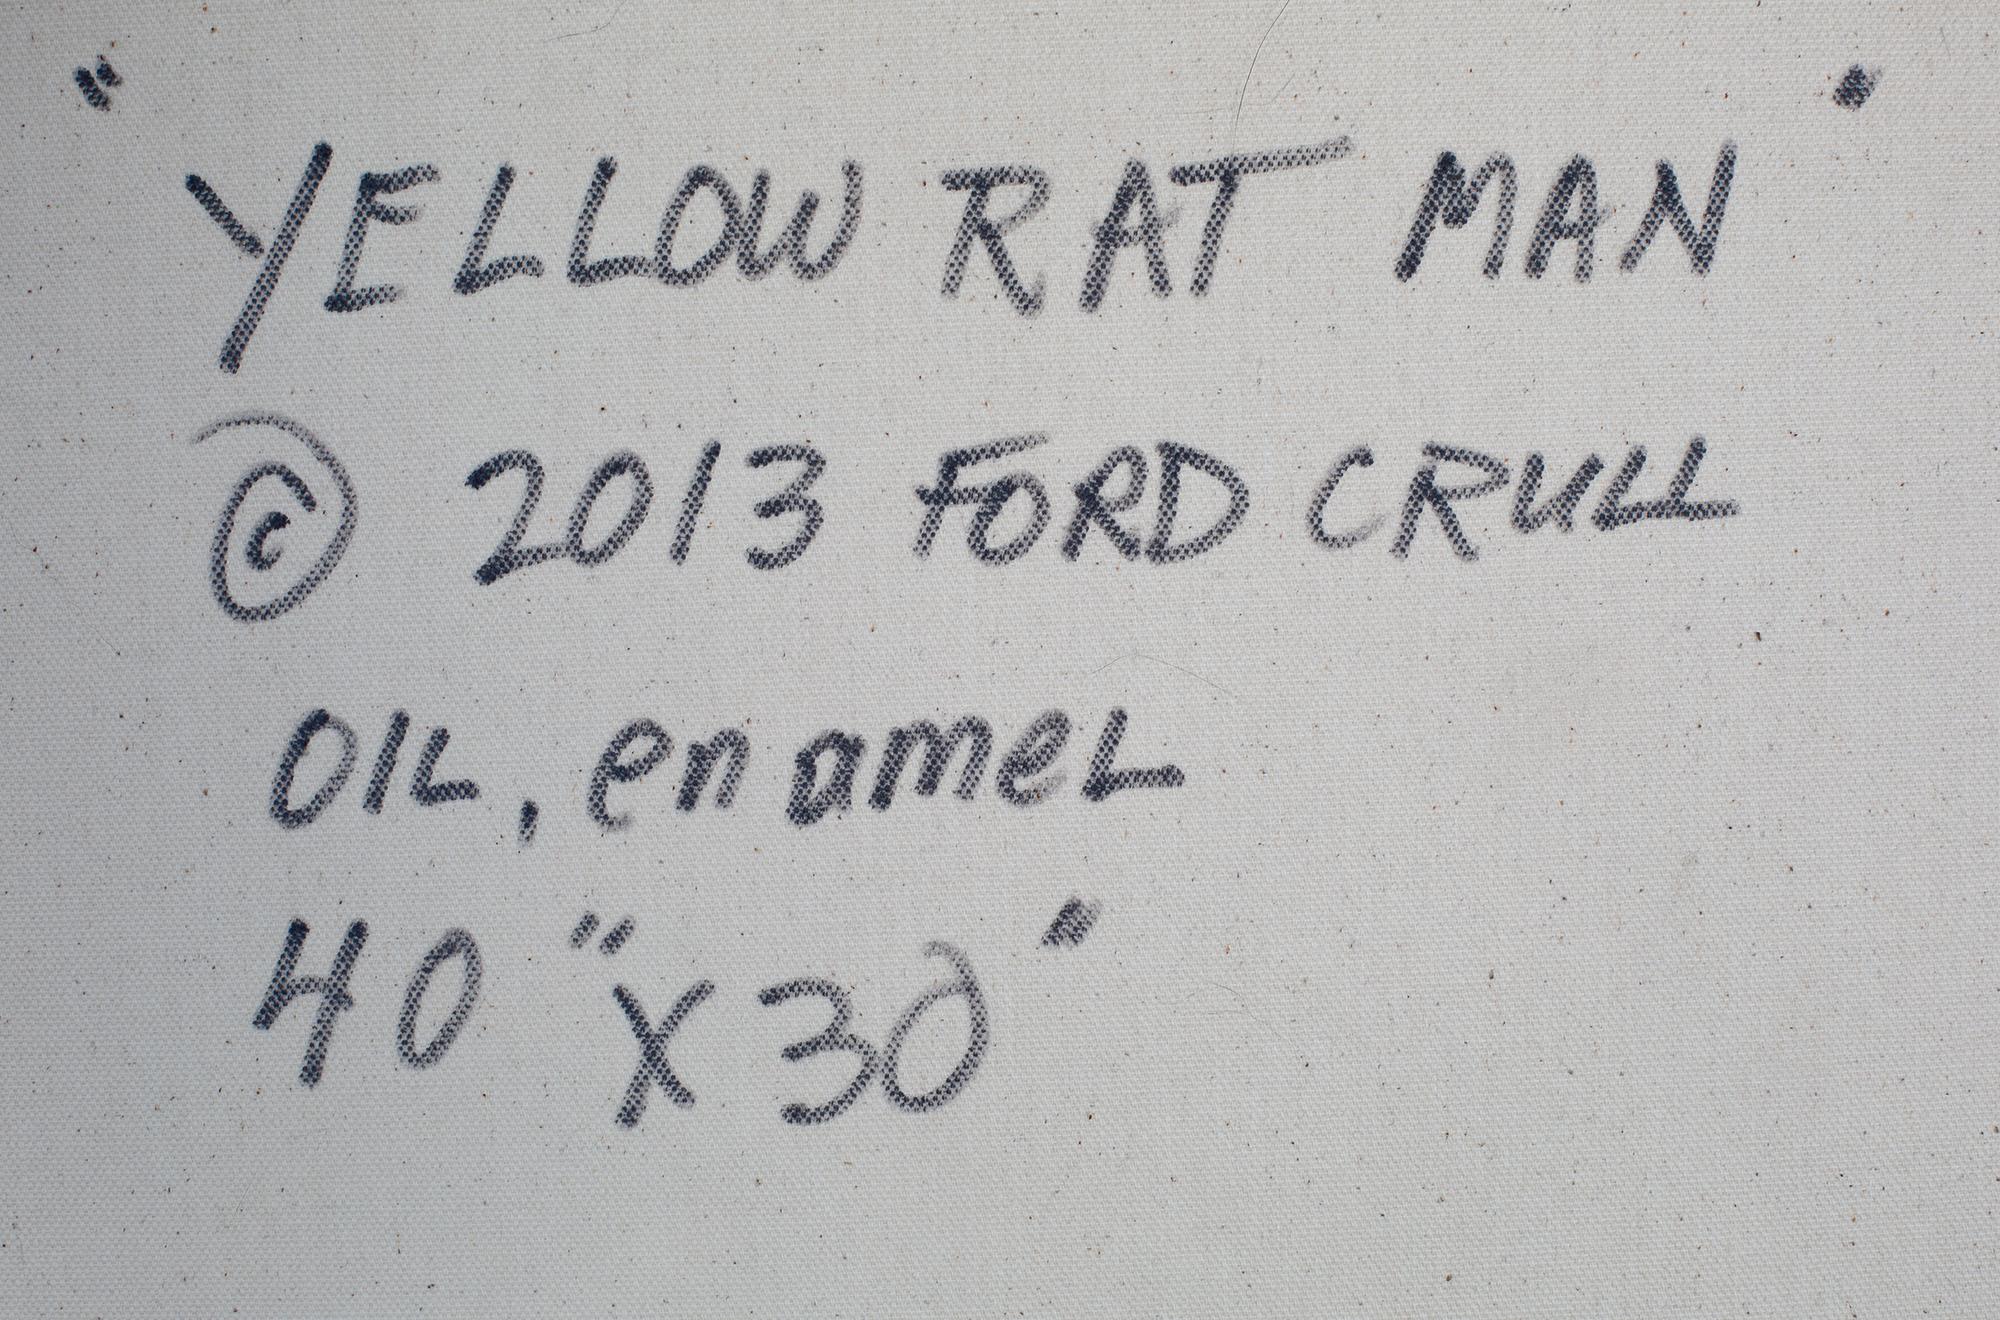 "YELLOW RAT MAN"
© 2013 FORD CRULL
OIL, enameL
40" X 30"